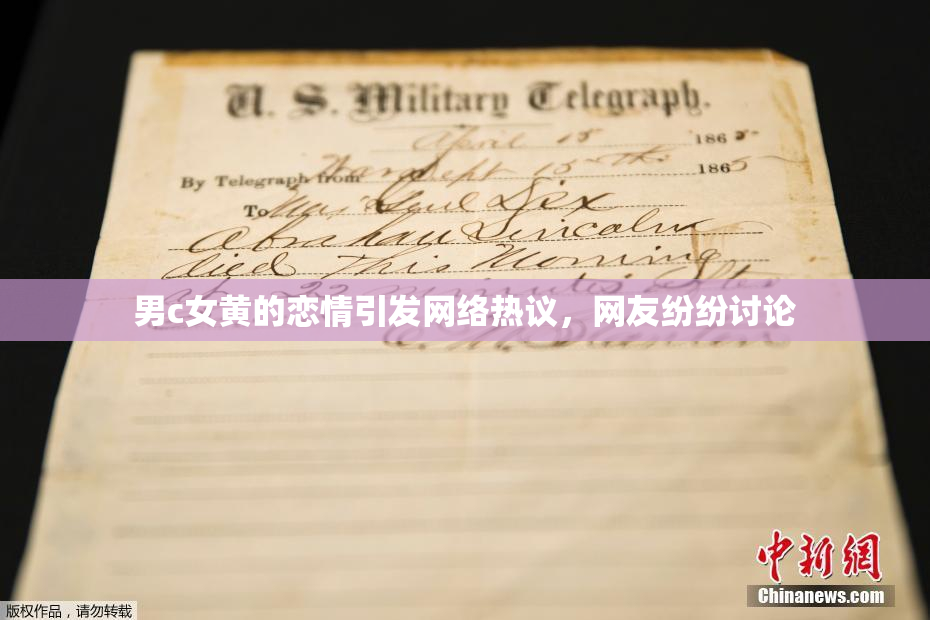 U. S. Military Telegraph.
April 15 1865
By Telegraph from War Dept 15th 1865
To Maj Genl Dix
Abraham Lincoln
died This Morning
at 22 minutes After
男c女黄的恋情引发网络热议，网友纷纷讨论
E. M. Stanton
中新网
Chinanews.com
版权作品，请勿转载